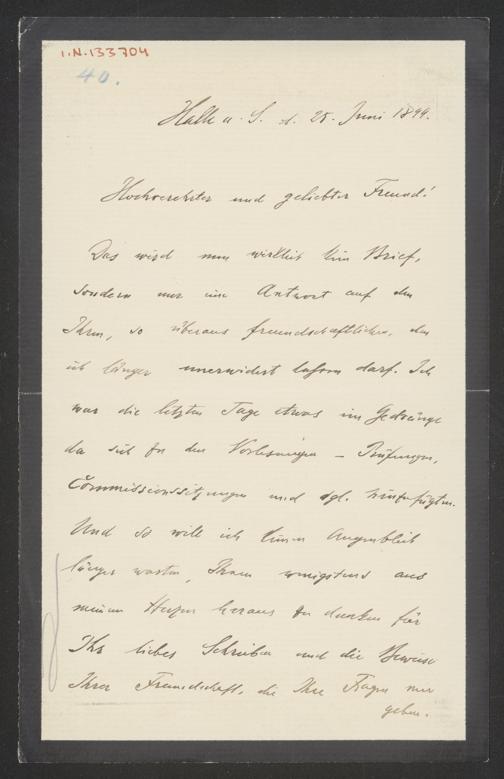 I.N. 133704
40.
Halle a. S. d. 25. Juni 1899.
Hochverehrter und geliebter Freund!
Das wird nun wirklich kein Brief,
sondern nur eine Antwort auf den
Ihren, so überaus freundschaftlichen, den
ich länger unerwidert lassen darf. Ich
war die letzten Tage etwas im Gedränge
da sich zu den Vorlesungen – Prüfungen,
Commissionssitzungen und dgl. hinzufügten.
Und so will ich keinen Augenblick
länger warten, Ihnen wenigstens aus
meinem Herzen heraus zu danken für
Ihr liebes Schreiben und die Beweise
Ihrer Freundschaft, die Ihre Fragen mir
geben.